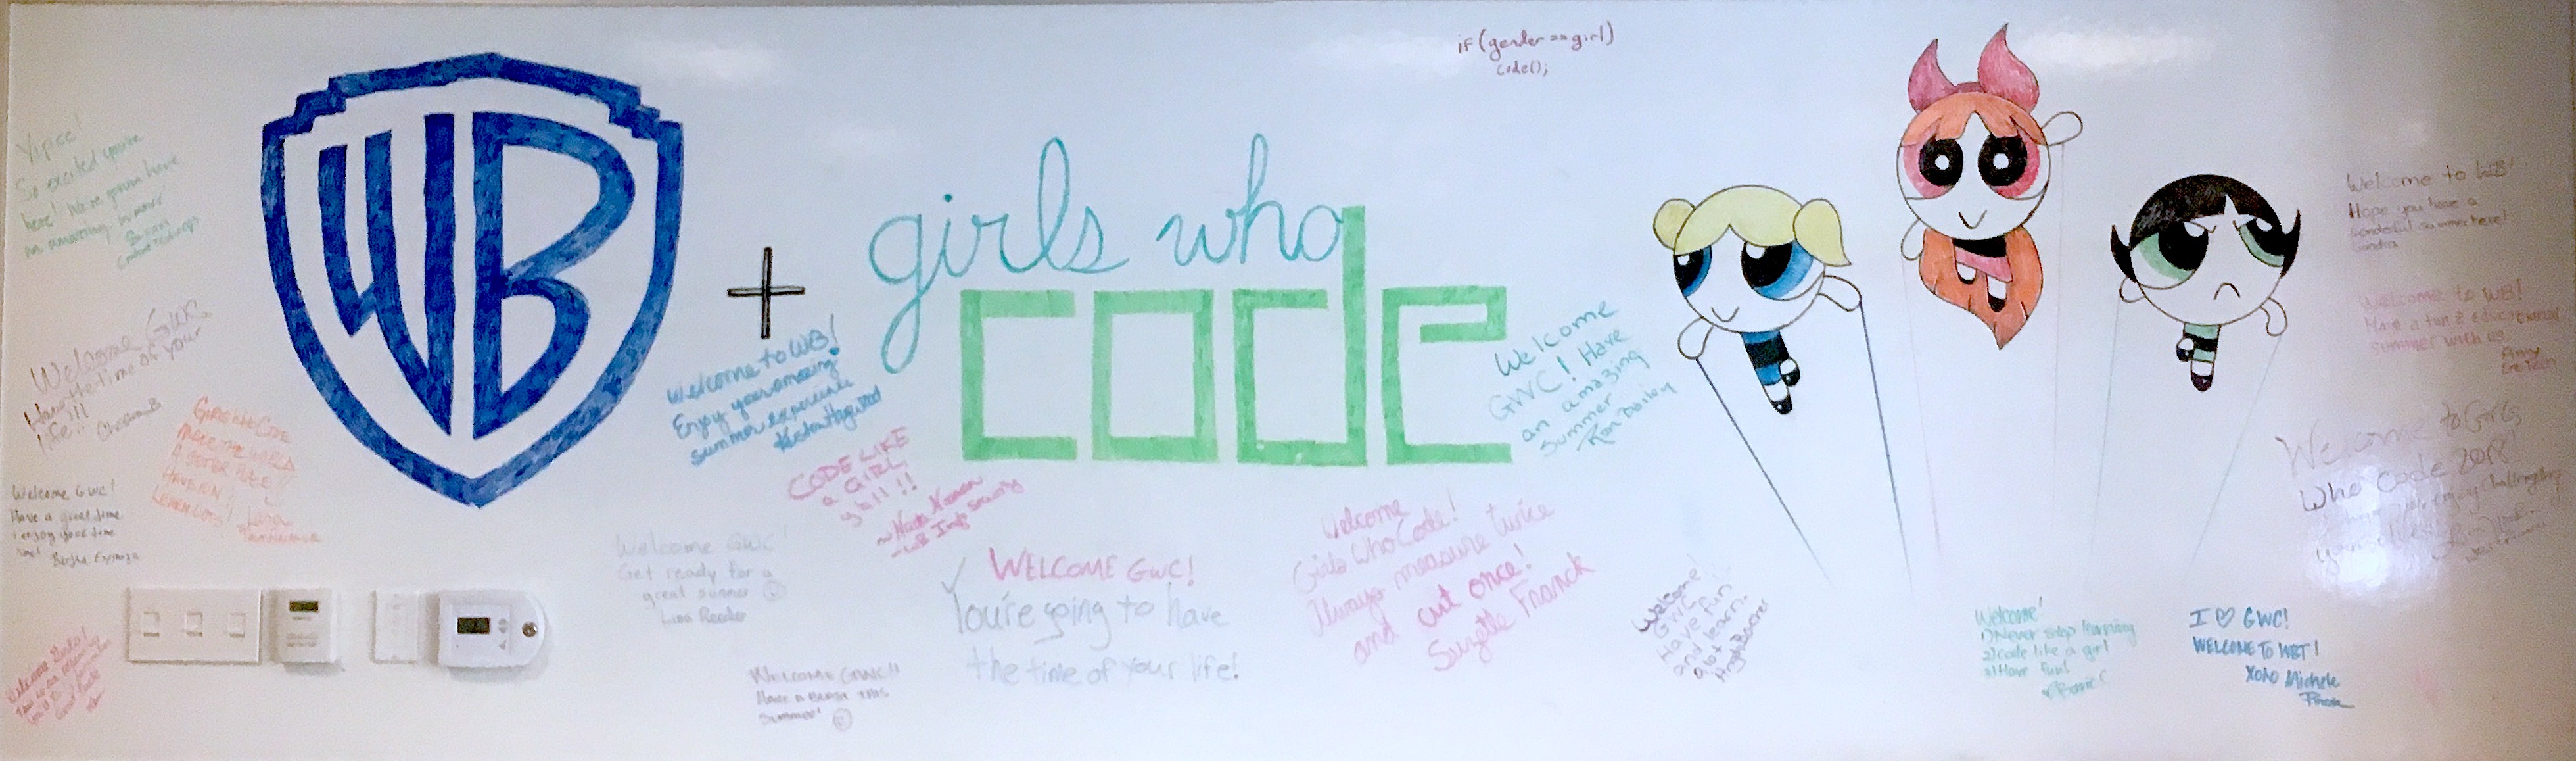 if (gender == girl)
code();
WB
+
girls who
code
Yipee!
So excited you're
here! We're gonna have
an amazing summer
Susan
Welcome GWC
Have the time of your
life!!!
Christina B
Girls Who Code
Make the world
a better place!!
Have fun!
Learn lots!
Lisa
Welcome GWC!
Have a great time
enjoy your time
here!
Welcome Girls!
Welcome to WB!
Enjoy your amazing
summer experience
CODE LIKE
a GIRL
y'all!!
- WB Info Security
Welcome GWC!
Get ready for a
great summer
Lisa Roeder
WELCOME GWC!!
Have a blast this
summer!
WELCOME GWC!
You're going to have
the time of your life!
Welcome
Girls Who Code!
Always measure twice
and cut once!
Suzette Franck
Welcome
GWC! Have
an amazing
summer
Ron Dailey
Welcome
GWC
Have fun
and learn
a lot
Welcome!
1) Never stop learning
2) Code like a girl
3) Have fun!
I ♡ GWC!
WELCOME TO WBT!
XOXO Michele
Welcome to WB!
Hope you have a
wonderful summer here!
Sandra
Welcome to WB!
Have a fun & educational
summer with us
Amy
Welcome to Girls
Who Code 2018!
enjoy challenging